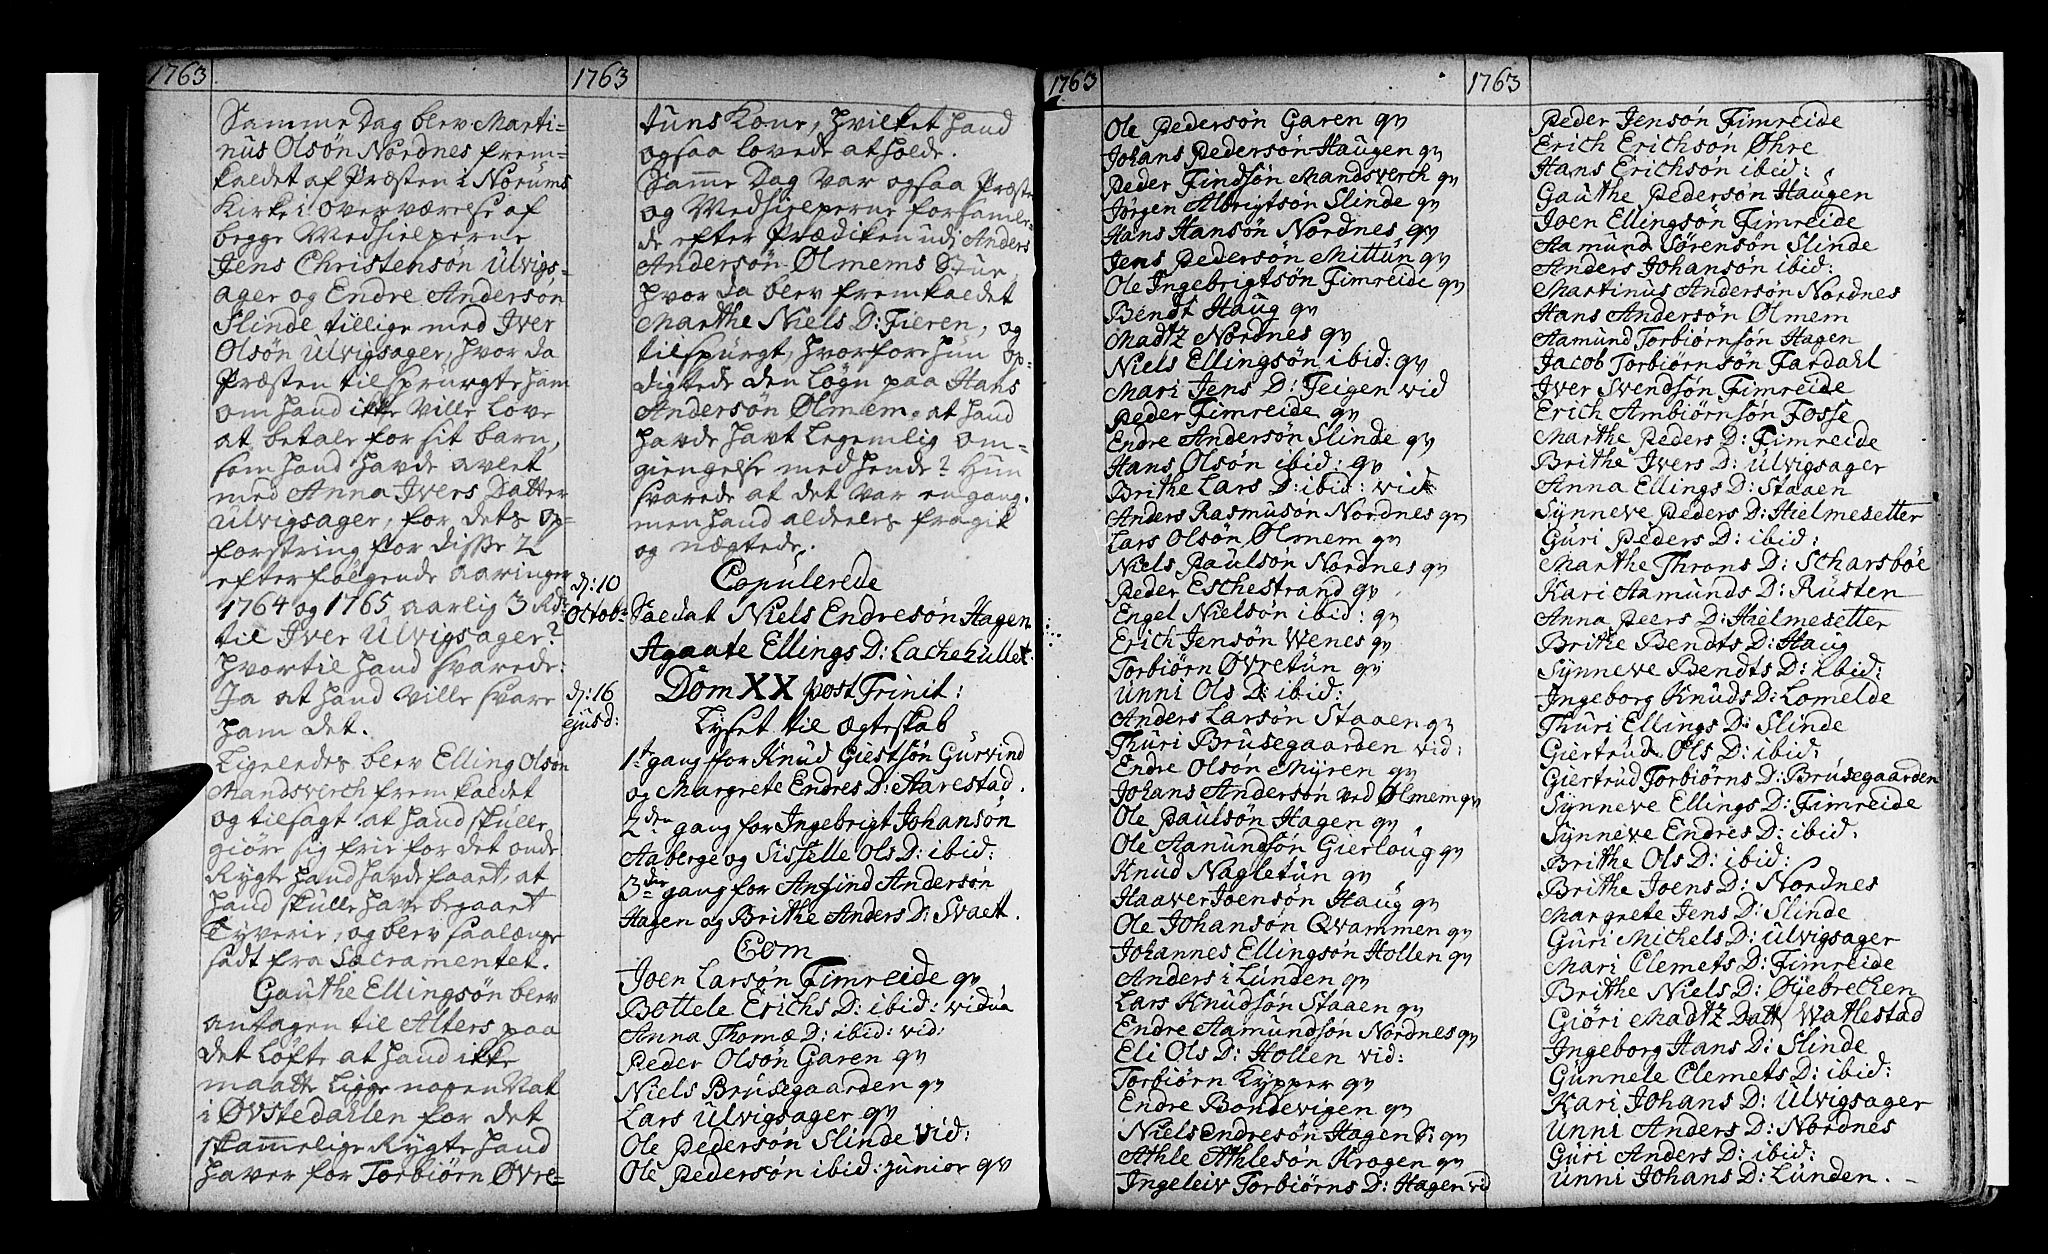 1763
Samme Dag blev Marti-
nus Olsön Nordnes frem-
kaldet af Præsten i Norums
Kirke i overværelse af
begge Medhielperne
Jens Christensön Ulvigs-
ager og Endre Andersön
Slinde tillige med Iver
Olsön Ulvigsager, hvor da
Præsten tilspurgte ham
om hand ikke ville love
at betale for sit barn,
som hand havde avlet
med Anna Ivers Datter
Ulvigsager, for dets op-
fostring for disse 2
efterfölgende aaringer
1764 og 1765 aarlig 3 Rd:
til Iver Ulvigsager?
hvortil hand svarede:
Ja at hand ville svare
ham det.
Ligeledes blev Elling Olsön
Mandsverch fremkaldet
og tilsagt at hand skulle
giöre sig frie for det onde
Rygte hand havde faaet, at
hand skulle have begaaet
Tyverie, og blev saalænge
sadt fra Sacramentet.
Gauthe Ellingsön blev
antagen til Alters paa
det löfte at hand ikke
maatte ligge nogen Nat
i Øvstedahlen for det
skammelige Rygte hand
haver for Torbiörn Øvre-
1763
tuns Kone, hvilket hand
ogsaa lovede at holde.
Samme Dag var ogsaa Præsten
og Medhielperne forsamle-
de efter Prædiken udi Anders
Andersön Ølmems Stue
hvor da blev fremkaldet
Marthe Niels D: Fieren, og
tilspurgt, hvorfore hun op-
digtede den Løgn paa Hans
Andersön Ølmem, at hand
havde havt Legemlig om-
giengelse med hende? Hun
svarede at det var engang.
men hand aldeeles fragik
og nægtede.
Copulerede
d: 10
Octob:
Saedat Niels Endresön Hagen
Agaate Ellings D: Lachehullet.
d: 16
ejusd:
Dom XX post Trinit:
Lyset til Ægteskab
1te gang for Knud Giestsön Gurvind
og Margrete Endres D: Aarestad.
2den gang for Ingebrigt Johansön
Aaberge og Sisselle Ols D: ibid:
3die gang for Anfind Andersön
Hagen og Brithe Anders D: Svaet.
Com
Joen Larsön Fimreide qv
Bottele Erichs D: ibid: vidua
Anna Thomæ D: ibid: vid:
Peder Olsön Garen qv
Niels Brusegaarden qv
Lars Ulvigsager qv
Ole Pedersön Slinde vid:
Ole Pedersön ibid: junior qv
1763
Ole Pedersön Garen qv
Johans Pedersön Haugen qv
Peder Findsön Mandsverch qv
Jörgen Albrigtsön Slinde qv
Hans Hansön Nordnes qv
Jens Pedersön Mittun qv
Ole Ingebrigtsön Fimreide qv
Bendt Haug qv
Madtz Nordnes qv
Niels Ellingsön ibid: qv
Mari Jens D: Feigen vid
Peder Fimreide qv
Endre Andersön Slinde qv
Hans Olsön ibid: qv
Brithe Lars D: ibid: vid
Anders Rasmusön Nordnes qv
Lars Olsön Ølmem qv
Niels Paulsön Nordnes qv
Peder Eschestrand qv
Engel Nielsön ibid: qv
Erich Jensön Wenes qv
Torbiörn Øvretun qv
Unni Ols D: ibid:
Anders Larsön Staaen qv
Thuri Brusegaarden vid:
Endre Olsön Myren qv
Johans Andersön ved Ølmem qv
Ole Paulsön Hagen qv
Ole Aamundsön Gierloug qv
Knud Nagletun qv
Haaver Joensön Haug qv
Ole Johansön Qvammen qv
Johannes Ellingsön Hollen qv
Anders i Lunden qv
Lars Knudsön Staaen qv
Endre Aamundsön Nordnes qv
Eli Ols D: Hollen vid:
Torbiörn Kypper qv
Endre Bondevigen qv
Niels Endresön Hagen qv
Athle Athlesön Krogen qv
Ingeleiv Torbiörns D: Hagen vid
1763
Peder Jensön Fimreide
Erich Erichsön Øhre
Hans Erichsön ibid:
Gauthe Pedersön Haugen
Joen Ellingsön Fimreide
Aamund Sörensön Slinde
Anders Johansön ibid:
Martinus Andersön Nordnes
Hans Andersön Ølmem
Aamund Torbiörnsön Hagen
Jacob Torbiörnsön Fardahl
Iver Svendsön Fimreide
Erich Ambiörnsön Fosse
Marthe Peders D: Fimreide
Brithe Ivers D: Ulvigsager
Anna Ellings D: Staaen
Synneve Peders D: Hielmesetter
Guri Peders D: ibid:
Marthe Throns D: Scharsböe
Kari Aamunds D: Rusten
Anna Peers D: Hielmesetter
Brithe Bendts D: Haug
Synneve Bendts D: ibid:
Ingeborg Knuds D: Lomelde
Thuri Ellings D: Slinde
Giertrud Ols D: ibid:
Giertrud Torbiörns D: Brusegaarden
Synneve Ellings D: Fimreide
Synneve Endres D: ibid:
Brithe Ols D: ibid:
Brithe Joens D: Nordnes
Margrete Jens D: Slinde
Guri Michels D: Ulvigsager
Mari Clemets D: Fimreide
Brithe Niels D: Øyebrechen
Giöri Madtz Datt Watlestad
Ingeborg Hans D: Slinde
Gunnele Clemets D: ibid:
Kari Johans D: Ulvigsager
Unni Anders D: Nordnes
Guri Anders D: ibid:
Unni Johans D: Lunden.